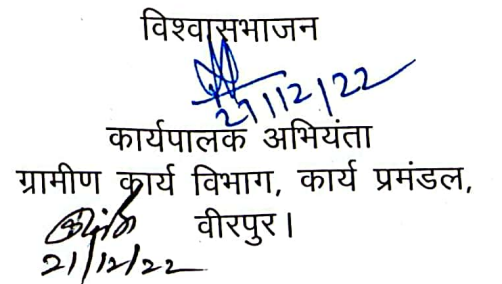 विश्वासभाजन
21/12/22
कार्यपालक अभियंता
ग्रामीण कार्य विभाग, कार्य प्रमंडल,
वीरपुर।
21/12/22